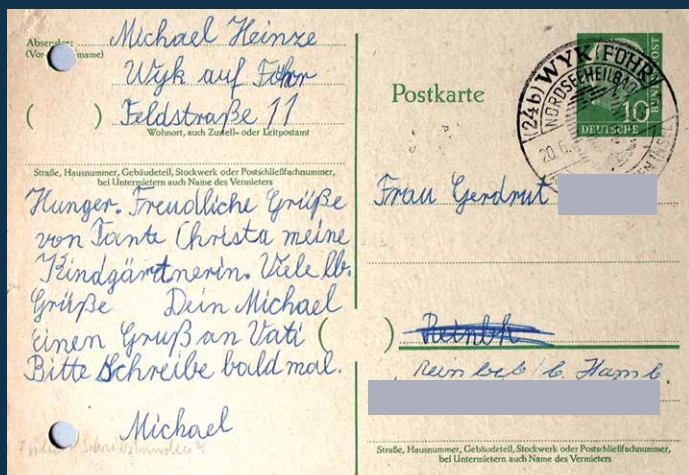 Absender:
(Vor- name)
Michael Heinze
Wyk auf Föhr
( ) Feldstraße 11
Wohnort, auch Zustell- oder Leitpostamt
Straße, Hausnummer, Gebäudeteil, Stockwerk oder Postschließfachnummer,
bei Untermietern auch Name des Vermieters
Hunger. Freudliche Grüße
von Tante Christa meine
Kindgärtnerin. Viele lb.
Grüße Dein Michael
einen Gruß an Vati
Bitte Schreibe bald mal.
Michael
Postkarte
(24b) WYK (FÖHR)
NORDSEEHEILBAD
20.6.
10
DEUTSCHE
BUNDESPOST
Frau Gerdrut
( ) Reinbek
Reinbek b. Hamb.
Straße, Hausnummer, Gebäudeteil, Stockwerk oder Postschließfachnummer,
bei Untermietern auch Name des Vermieters